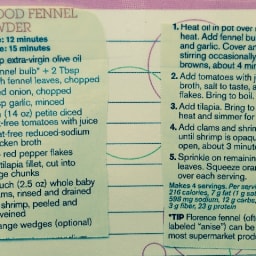 OOD FENNEL
WDER
12 minutes
15 minutes
extra-virgin olive oil
nnel bulb* + 2 Tbsp
h fennel leaves, chopped
ed onion, chopped
sp garlic, minced
(14 oz) petite diced
t-free tomatoes with juice
at-free reduced-sodium
cken broth
red pepper flakes
tilapia fillet, cut into
ge chunks
uch (2.5 oz) whole baby
ms, rinsed and drained
shrimp, peeled and
veined
ange wedges (optional)
1. Heat oil in pot over
heat. Add fennel bu
and garlic. Cover an
stirring occasionally
browns, about 4 min
2. Add tomatoes with j
broth, salt to taste, a
flakes. Bring to boil.
3. Add tilapia. Bring to
heat and simmer for
4. Add clams and shrim
until shrimp is opaqu
open, about 3 minute
5. Sprinkle on remainin
leaves. Squeeze oran
over each serving.
Makes 4 servings. Per serv
216 calories, 7 g fat (1 g sat
598 mg sodium, 12 g carbs,
3 g fiber, 23 g protein
*TIP Florence fennel (oft
labeled "anise") can be
most supermarket produ